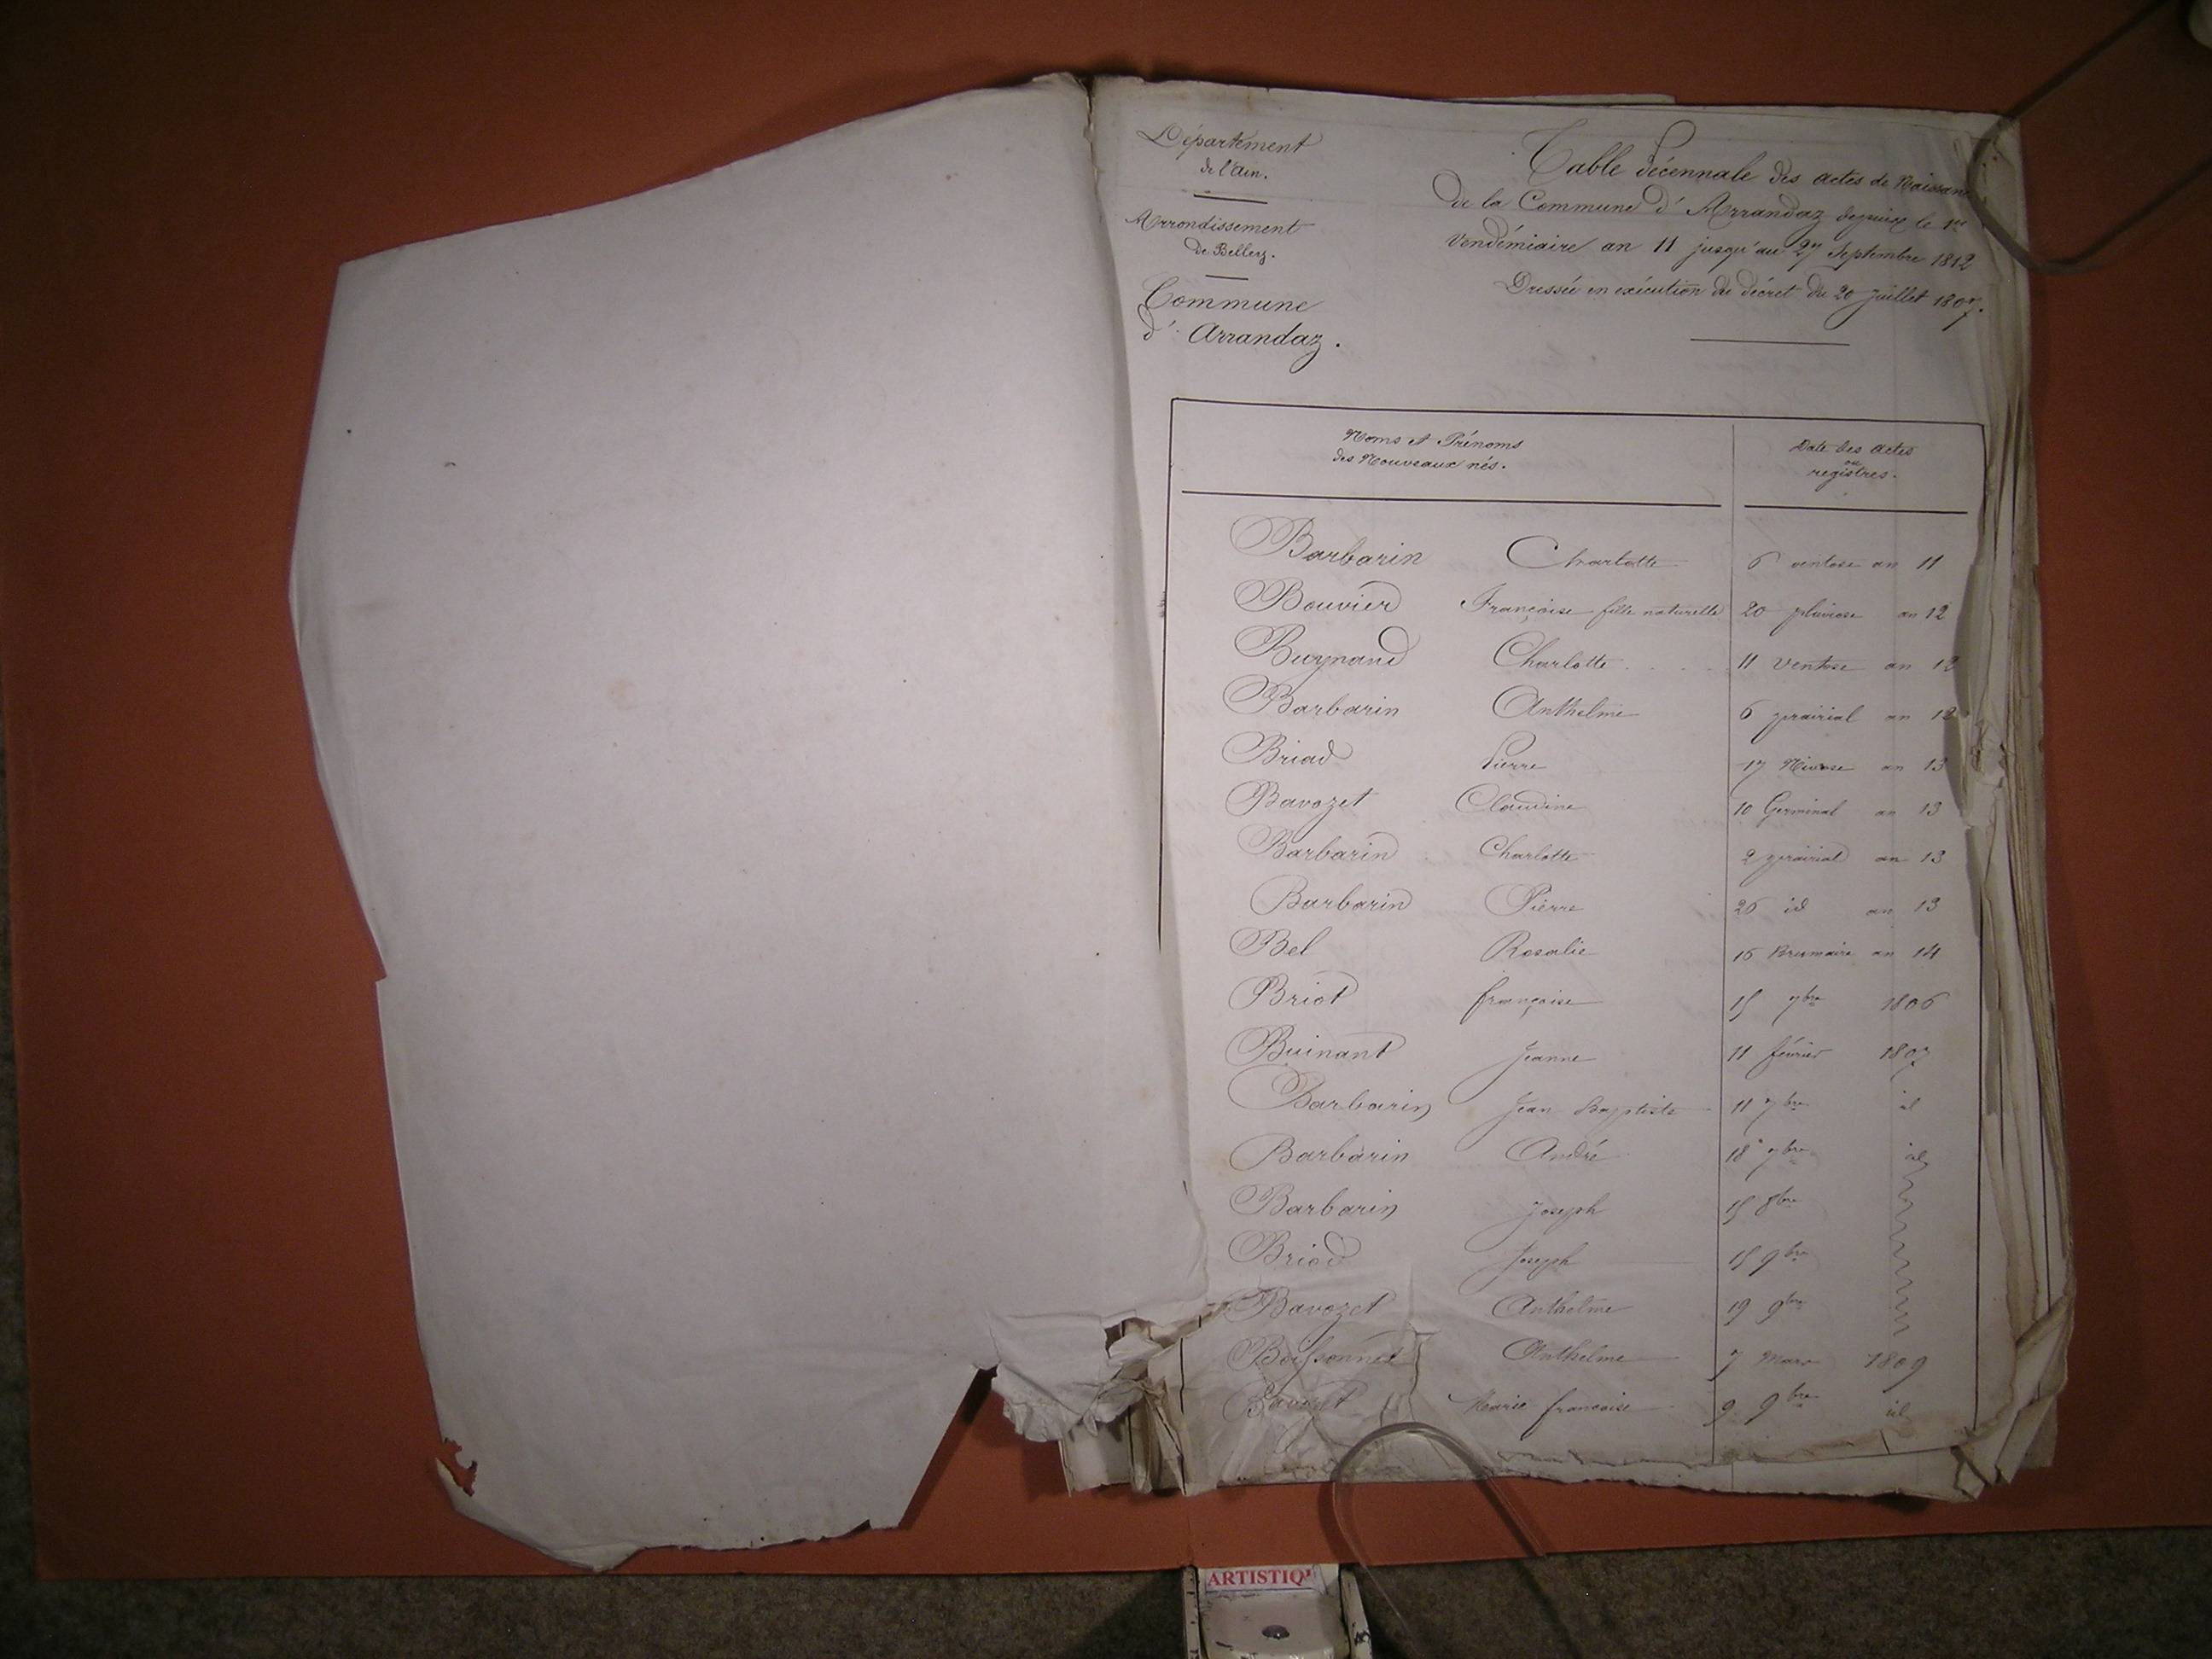 Département
de l'Ain.
Arrondissement
de Belley.
Commune
d'Arrandaz.
Table décennale des actes de Naissan
de la Commune d'Arrandaz depuis le 1er
Vendémiaire an 11 jusqu'au 27 Septembre 1812
Dressée en exécution du décret du 20 juillet 1807.
Noms et Prénoms
des Nouveaux nés.
Date des actes
ou
registres.
Barbarin Charlotte 6 ventose an 11
Bouvier Françoise fille naturelle 20 pluviose an 12
Buynand Charlotte 11 Ventose an 12
Barbarin Anthelme 6 prairial an 12
Briod Pierre 17 Nivose an 13
Bavozet Claudine 10 Germinal an 13
Barbarin Charlotte 2 prairial an 13
Barbarin Pierre 26 id an 13
Bel Rosalie 16 Brumaire an 14
Briot françoise 15 7bre 1806
Buinant Jeanne 11 février 1807
Barbarin Jean Baptiste 11 7bre id
Barbarin André 18 7bre id
Barbarin Joseph 15 8bre
Briod Joseph 15 9bre
Bavozet Anthelme 19 9bre
Boissonnet Anthelme 7 Mars 1809
Marie francoise 9 9bre id
ARTISTIQ'